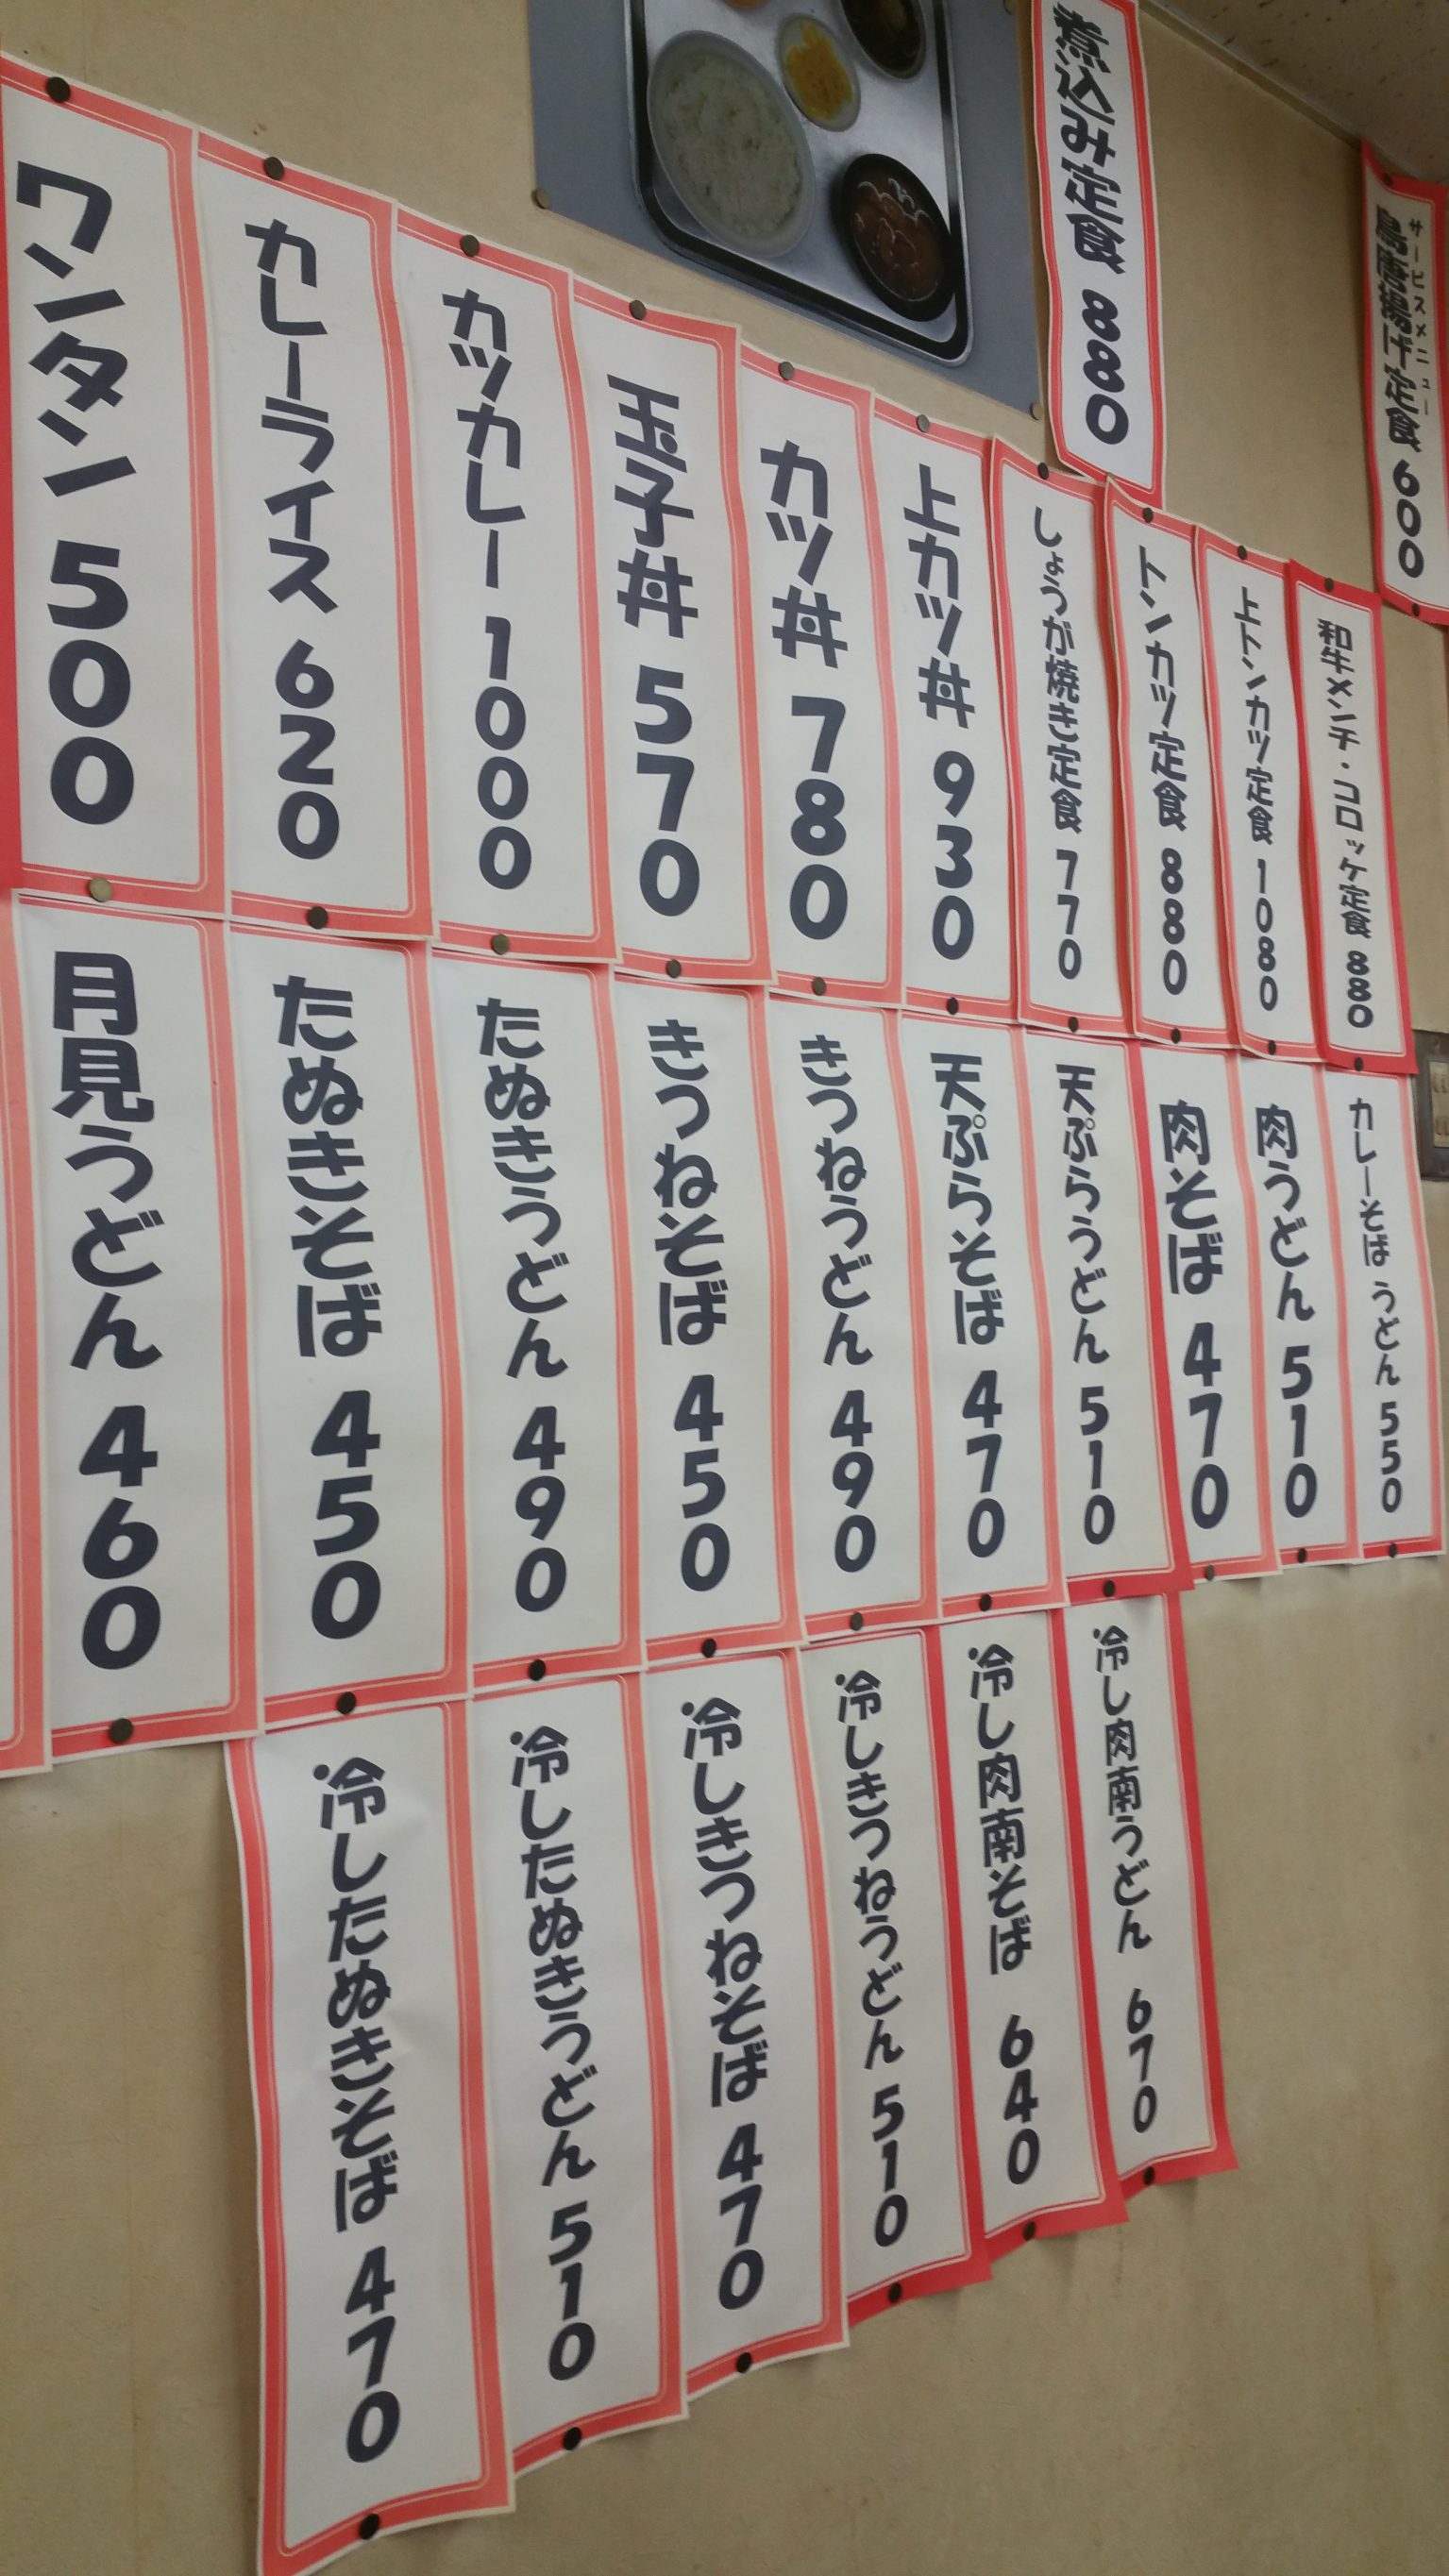 煮込み定食 880
サービスメニュー
鳥唐揚げ定食 600
ワンタン 500
カレーライス 620
カツカレー 1000
玉子丼 570
カツ丼 780
上カツ丼 930
しょうが焼き定食 770
トンカツ定食 880
上トンカツ定食 1080
和牛メンチ・コロッケ定食 880
月見うどん 460
たぬきそば 450
たぬきうどん 490
きつねそば 450
きつねうどん 490
天ぷらそば 470
天ぷらうどん 510
肉そば 470
肉うどん 510
カレーそば うどん 550
冷したぬきそば 470
冷したぬきうどん 510
冷しきつねそば 470
冷しきつねうどん 510
冷し肉南そば 640
冷し肉南うどん 670